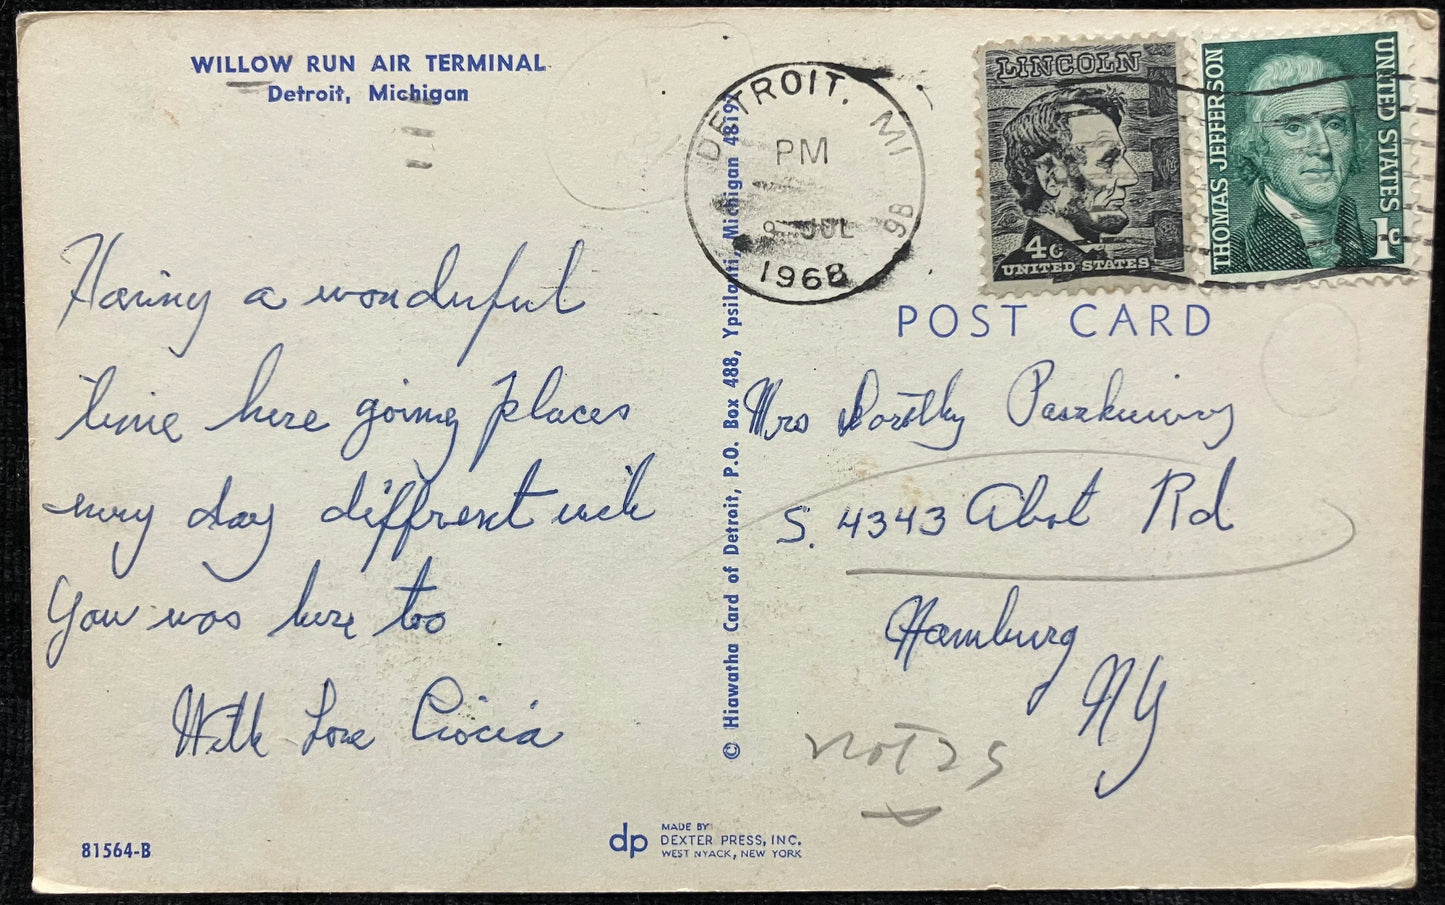 WILLOW RUN AIR TERMINAL
Detroit, Michigan
Having a wonderful
time here going places
every day different wich
You was here too
With Love Ciocia
81564-B
© Hiawatha Card of Detroit, P.O. Box 488, Ypsilanti, Michigan 48197
dp
MADE BY
DEXTER PRESS, INC.
WEST NYACK, NEW YORK
DETROIT, MI
PM
9 JUL
1968
9B
LINCOLN
4c
UNITED STATES
THOMAS JEFFERSON
UNITED STATES
1c
POST CARD
Mrs Dorothy
S. 4343 Abot Rd
Hamburg
NY